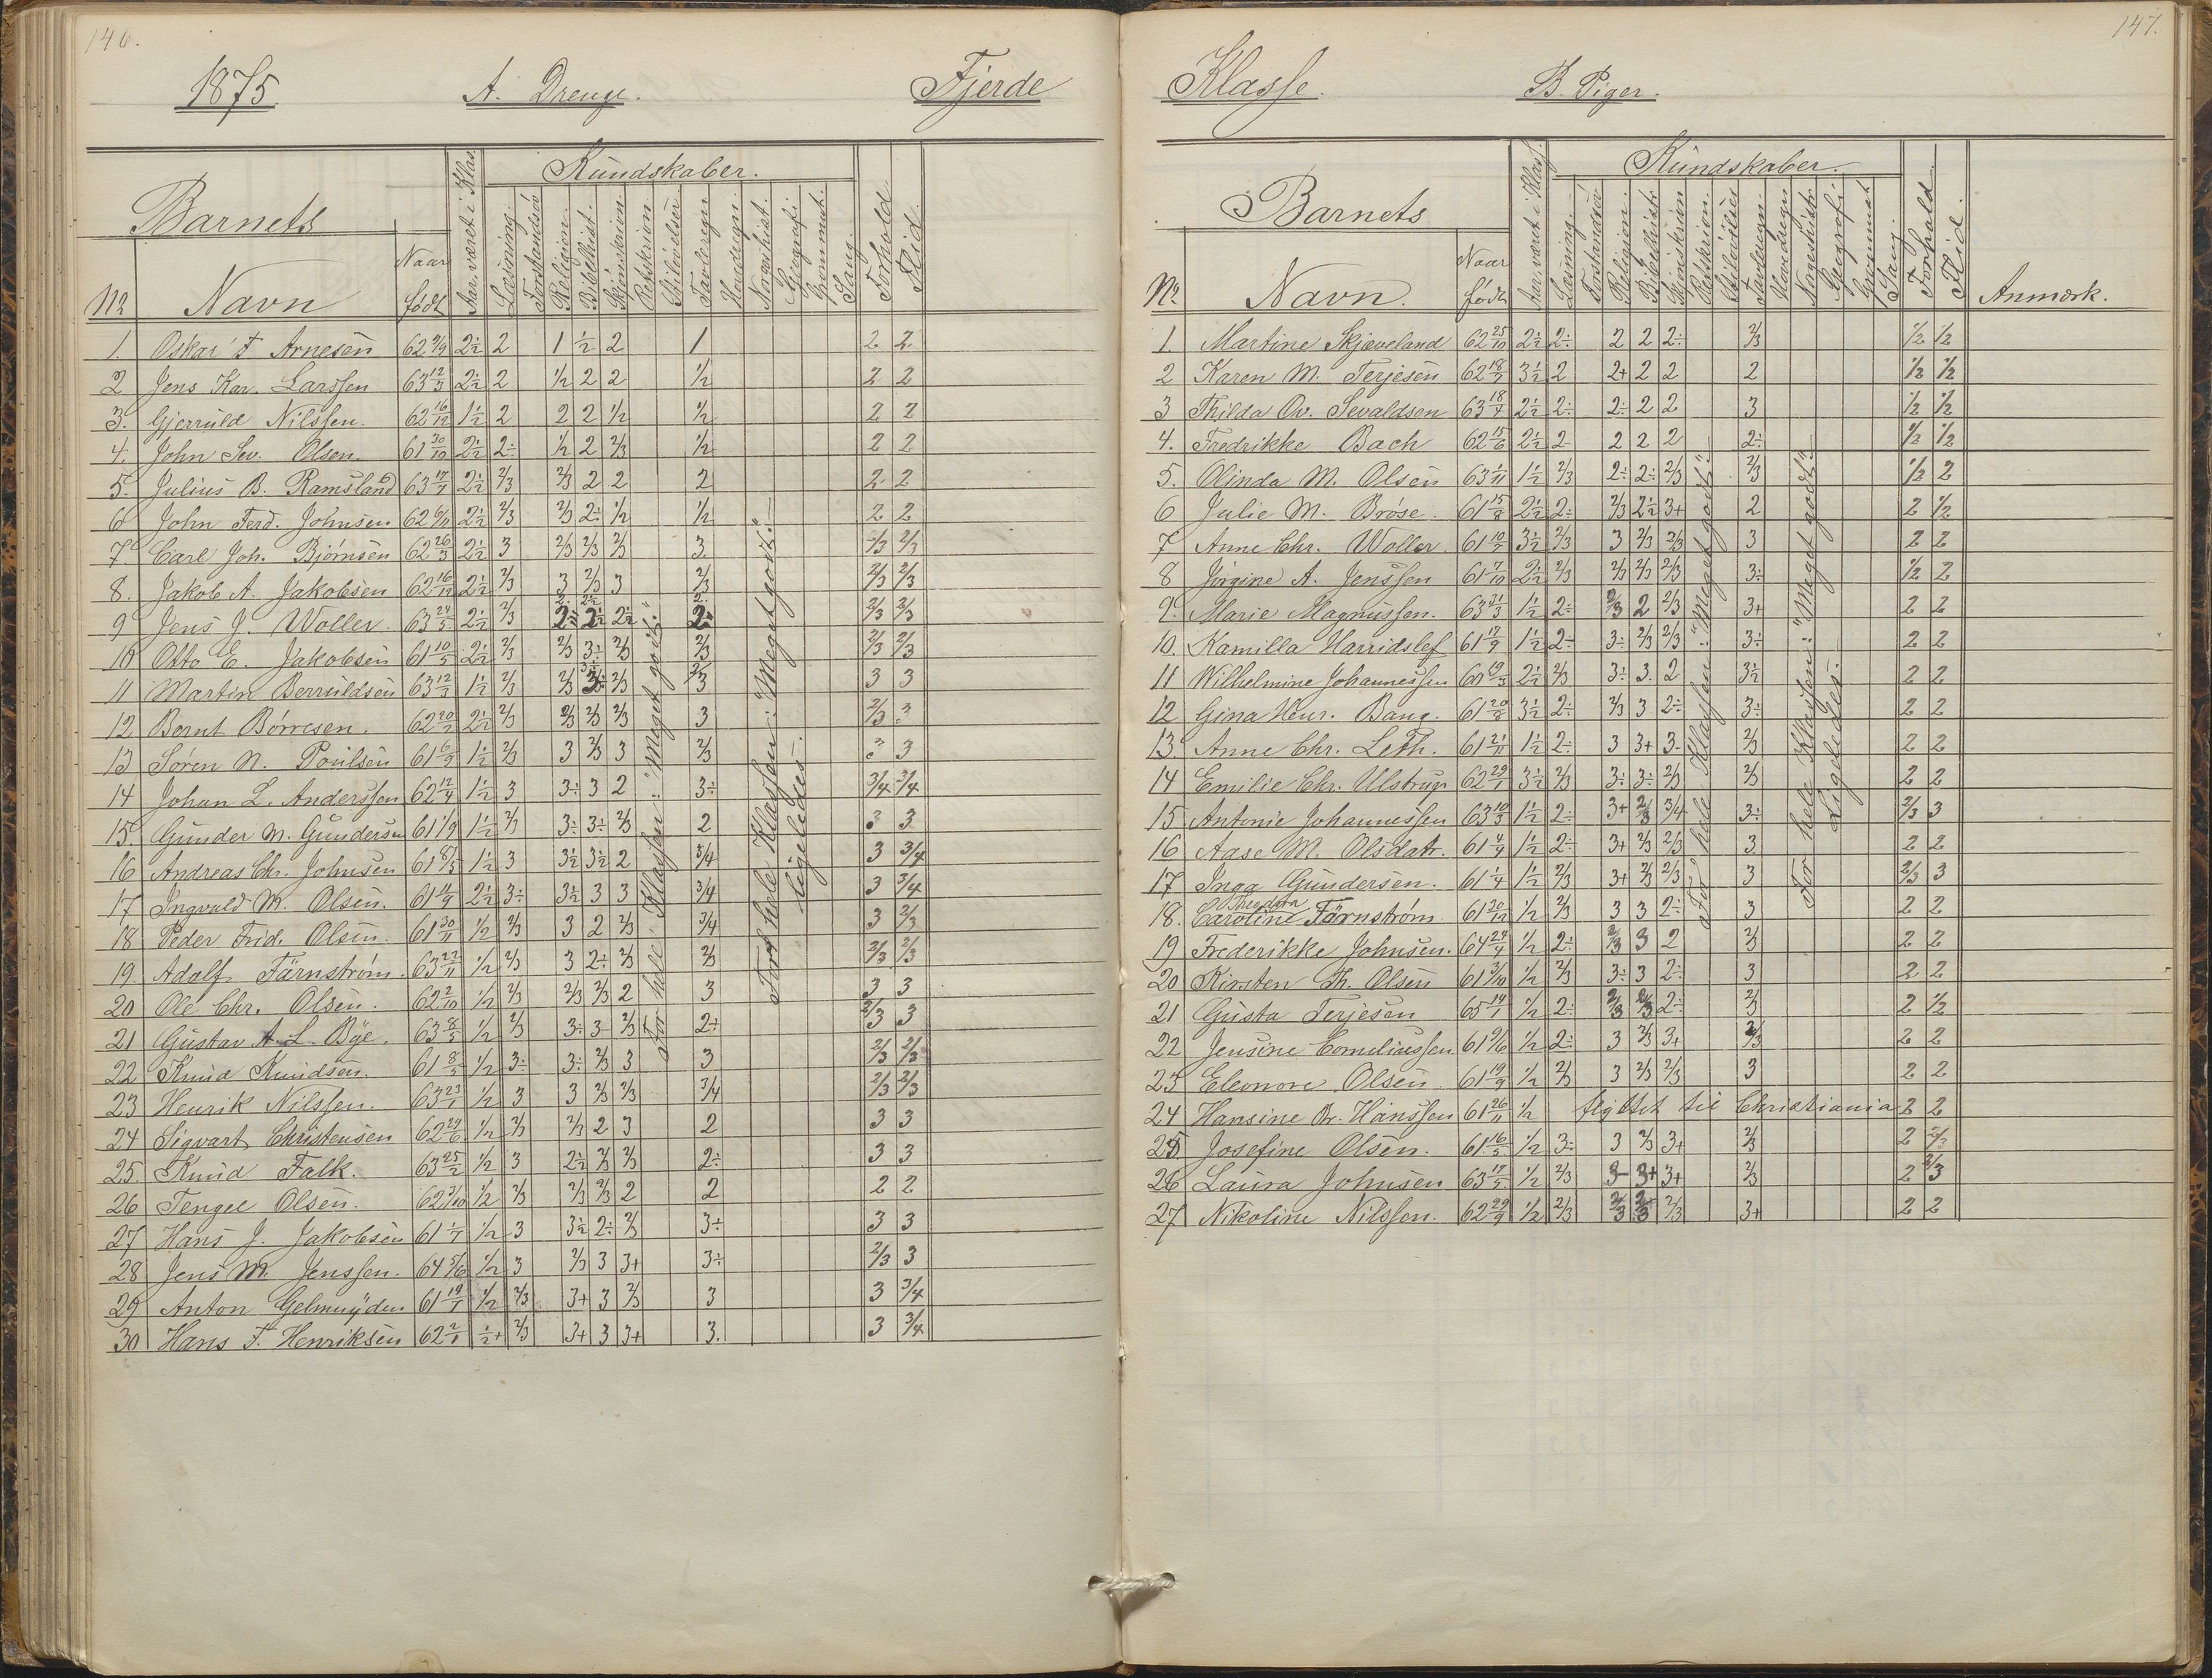 146.
1875 A. Drenge. Fjerde
Barnets Kundskaber.
No Navn Naar født Aar. været i Klas. Læsning. Forstandsö Religion. Bibelhist. Skjönskriv. Retskriv. Stiløvelser Tavleregn Hovedregn Norgeshist. Geografi Grammat. Sang. Forhold Flid.
1. Oskar F Arnesen 62 9/9 2½ 2 1 ½ 2 1 2 2
2 Jens Kar. Larssen 63 12/3 2½ 2 1/2 2 2 1/2 2 2
3. Gjerruld Nilssen. 62 16/12 1½ 2 2 2 1/2 1/2 2 2
4. John Sev. Olsen 61 30/10 2½ 2÷ 1/2 2 2/3 1/2 2 2
5. Julius B. Ramsland 63 17/7 2½ 2/3 2/3 2 2 2 2 2
6 John Ferd. Johnsen 62 6/11 2½ 2/3 2/3 2÷ 1/2 1/2 2 2
7 Carl Joh. Bjørnsen 62 26/3 2½ 3 2/3 2/3 2/3 3 2/3 2/3
8. Jakob A. Jakobsen 62 16/12 2½ 2/3 3 2/3 3 2/3 2/3 2/3
9 Jens J. Woller 63 24/5 2½ 2/3 2÷ 2½ 2½ 2÷ 2/3 2/3
10 Otto E. Jakobsen 61 10/5 2½ 2/3 2/3 3÷ 2/3 2/3 2/3 2/3
11 Martin Berruldsen 63 12/7 1½ 2/3 2/3 3÷ 2/3 2/3 3 3
12 Bernt Börresen. 62 20/7 2½ 2/3 2/3 2/3 2/3 3 2/3 3
13 Søren N. Poulsen 61 6/9 1½ 2/3 3 2/3 3 2/3 3 3
14 Johan L. Anderssen 62 12/4 1½ 3 3÷ 3 2 3÷ 3/4 3/4
15. Gunder M. Gundersen 61 1/9 1½ 2/3 3÷ 3÷ 2/3 2 3 3
16 Andreas Chr. Johnsen 61 8/5 1½ 3 3½ 3½ 2 3/4 3 3/4
17 Ingvald M. Olsen. 61 11/9 2½ 3÷ 3½ 3 3 3/4 3 3/4
18 Peder Frid. Olsen 61 30/11 1/2 2/3 3 2 2/3 3/4 3 2/3
19. Adolf Färnström. 63 22/11 1/2 2/3 3 2÷ 2/3 2/3 2/3 2/3
20 Ole Chr. Olsen. 62 2/10 1/2 2/3 2/3 2/3 2 3 3 3
21 Gustav A. L. Bye. 63 8/5 1/2 2/3 3÷ 3 2/3 2÷ 2/3 3
22 Knud Knudsen. 61 8/5 1/2 3÷ 3÷ 2/3 3 3 2/3 2/3
23 Henrik Nilssen. 63 23/7 1/2 3 3 2/3 2/3 3/4 2/3 2/3
24 Sigvart Christensen 62 29/6 1/2 2/3 2/3 2 3 2 3 3
25. Knud Falk. 63 25/2 1/2 3 2½ 2/3 2/3 2÷ 3 3
26 Tengel Olsen. 62 3/10 1/2 2/3 2/3 2/3 2 2 2 2
27 Hans J. Jakobsen 61 1/7 1/2 3 3½ 2÷ 2/3 3÷ 3 3
28 Jens M. Jenssen. 64 5/6 1/2 3 2/3 3 3+ 3÷ 2/3 3
29 Anton Gelmuyden 61 19/1 1/2 2/3 3+ 3 2/3 3 3 3/4
30 Hans F. Henriksen 62 2/1 ½+ 2/3 3+ 3 3+ 3. 3 3/4
For hele Klassen: "Meget godt".
For hele Klassen: "Meget godt".
Ligeledes.
147.
Klasse. B. Piger.
Barnets Kundskaber.
No. Navn. Naar født Aar. været i Klas. Læsning. Forstandsö Religion. Bibelhist. Skjönskriv Retskriv. Stiløvelser Tavleregn. Hovedregn Norgeshist. Geografi Grammat Sang. Forhold. Flid. Anmærk.
1. Martine Skjæveland 62 25/10 2½ 2÷ 2 2 2÷ 2/3 1/2 1/2
2 Karen M. Terjesen 62 18/7 3½ 2 2+ 2 2 2 1/2 1/2
3 Thilda Ov. Sevaldsen 63 18/4 2½ 2÷ 2÷ 2 2 3 1/2 1/2
4. Fredrikke Bach 62 15/6 2½ 2 2 2 2 2÷ 1/2 1/2
5. Olinda M. Olsen 63 1/11 1½ 2/3 2÷ 2÷ 2/3 2/3 1/2 2
6 Julie M. Bröse. 61 15/8 2½ 2÷ 2/3 2½ 3+ 2 2 1/2
7 Anne Chr. Woller. 61 10/7 3½ 2/3 3 2/3 2/3 3 2 2
8 Jörgine A. Jenssen 61 7/10 2½ 2/3 2/3 2/3 2/3 3÷ 1/2 2
9. Marie Magnussen. 63 31/3 1½ 2÷ 2/3 2 2/3 3+ 2 2
10. Kamilla Harridslef 61 17/9 1½ 2÷ 3÷ 2/3 2/3 3÷ 2 2
11 Wilhelmine Johannessen 60 19/3 2½ 2/3 3÷ 3. 2 3½ 2 2
12 Gina Henr. Bang. 61 20/8 3½ 2÷ 2/3 3 2÷ 3÷ 2 2
13. Anne Chr. Leth. 61 21/11 1½ 2÷ 3 3+ 3 2/3 2 2
14 Emilie Chr. Ulstrup 62 29/1 3½ 2/3 3÷ 3÷ 2/3 2/3 2 2
15 Antonie Johannessen 63 10/3 1½ 2÷ 3+ 2/3 3/4 3÷ 2/3 3
16 Aase M. Olsdatr. 61 4/7 1½ 2÷ 3+ 2/3 2/3 3 2 2
17 Inga Gundersen. 61 1/4 1½ 2/3 3+ 2/3 2/3 3 2/3 3
Theodora
18. Caroline Färnström 61 30/12 1/2 2/3 3 3 2÷ 3 2 2
19 Frederikke Johnsen. 64 24/4 1/2 2÷ 2/3 3 2 2/3 2 2
20 Kirsten Th. Olsen 61 3/10 1/2 2/3 3÷ 3 2÷ 3 2 2
21 Gusta Terjesen 65 14/1 1/2 2÷ 2/3 2/3 2÷ 2/3 2 1/2
22 Jensine Corneliussen 61 9/6 1/2 2÷ 3 2/3 3+ 2/3 2 2
23 Eleonore Olsen. 61 19/9 1/2 2/3 3 2/3 2/3 3 2 2
24 Hansine Hanssen 61 26/11 1/2 flyttet til Christiania 2 2
25 Josefine Olsen. 61 16/5 1/2 3÷ 3 2/3 3+ 2/3 2 2/3
26 Laura Johnsen 63 17/5 1/2 2/3 3 3+ 3+ 2/3 2 2/3
27 Nikoline Nilssen. 62 29/9 1/2 2/3 2/3 2/3 2/3 3+ 2 2
For hele Klassen: "Meget godt".
For hele Klassen: "Meget godt".
Ligeledes.